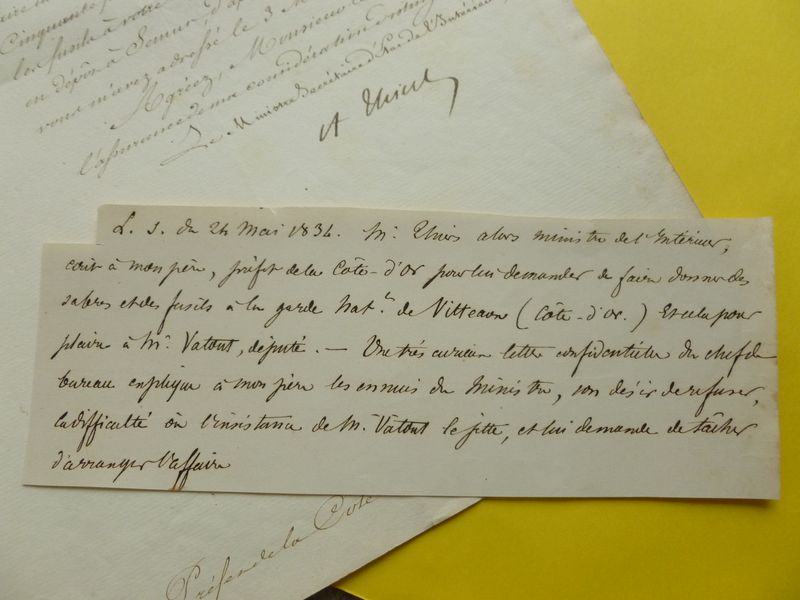 Cinquante
les fusils à votre
en dépôt à Semur d'ap
vous m'avez adressé le 3 M
Agréez, Monsieur le
l'assurance de ma considération disting
Le Ministre Secrétaire d'Etat de l'Intérieur
A Thiers
L. S. du 24 Mai 1834. Mr. Thiers alors ministre de l'Intérieur,
écrit à mon père, préfet de la Côte-d'Or pour lui demander de faire donner des
sabres et des fusils à la garde natle. de Vitteaux (Côte-d'or.) Et cela pour
plaire à Mr. Vatout, député. — Une très curieuse lettre confidentielle du chef de
bureau explique à mon père les ennuis du Ministre, son désir de refuser,
la difficulté où l'insistance de M. Vatout le jette, et lui demande de tâcher
d'arranger l'affaire
Préfet de la Cote